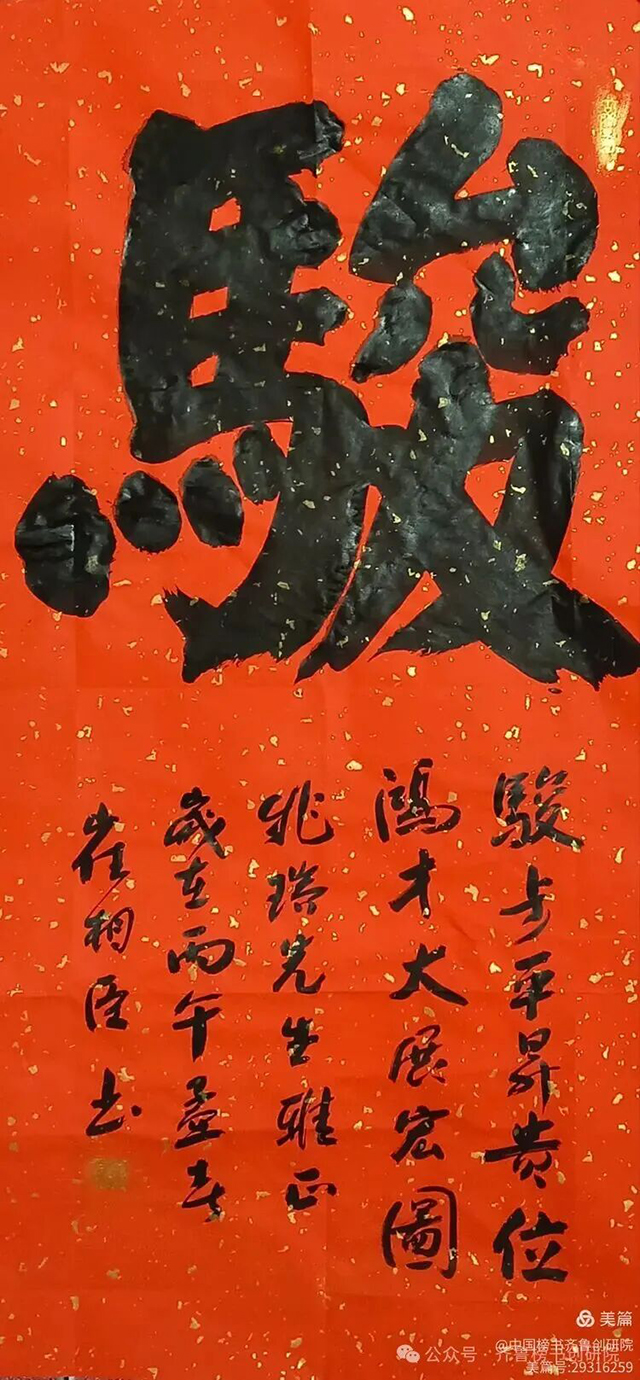 駿
駿步平昇貴位
鴻才大展宏圖
兆瑞先生雅正
歲在丙午孟春
崔相臣书
美篇
@中国榜书齐鲁创研院
公众号·齐鲁榜书创研院
美篇号:29316259